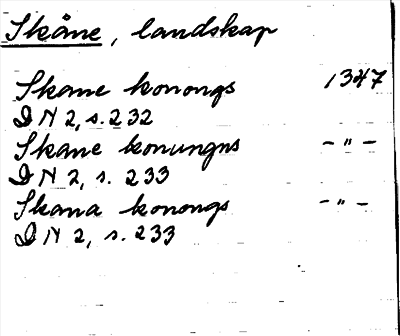 Skåne, landskap
Skane konongs 1347
DN 2, s. 232
Skane konungns -"-
DN 2, s. 233
Skana konongs -"-
DN 2, s. 233